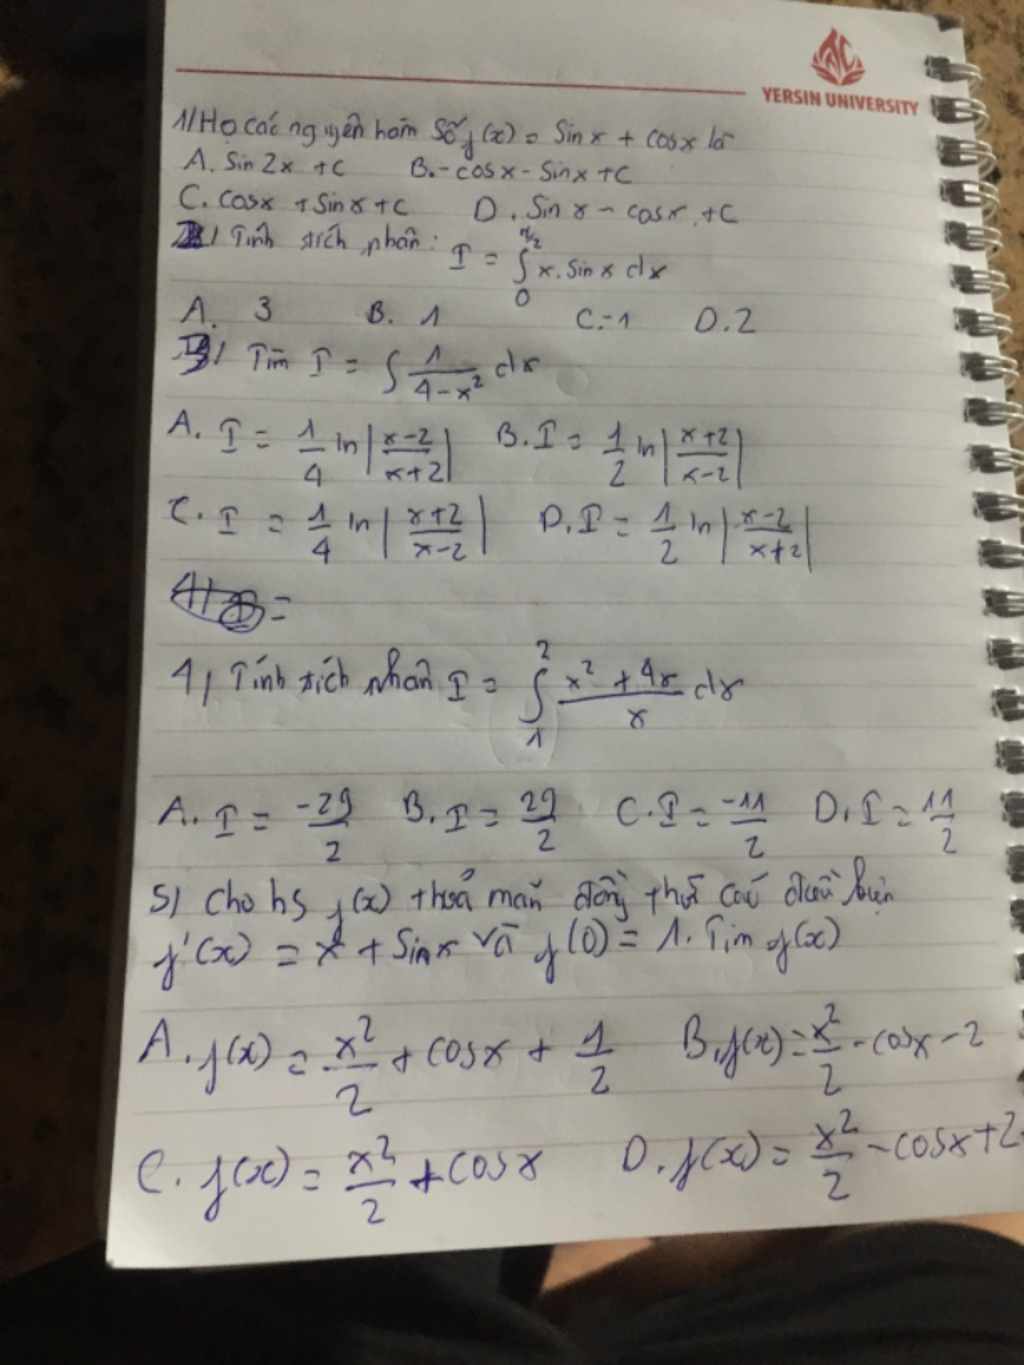 YERSIN UNIVERSITY
1/ Họ các nguyên hàm số f(x) = Sin x + cosx là
A. Sin 2x + C B. -cosx - Sinx + C
C. cosx + Sinx + C D. Sin x - cosx + C
2/ Tính tích phân: I = ∫₀^{π/2} x. Sin x dx
A. 3 B. 1 C. -1 D. 2
3/ Tìm I = ∫ 1/(4-x²) dx
A. I = 1/4 ln|(x-2)/(x+2)| B. I = 1/2 ln|(x+2)/(x-2)|
C. I = 1/4 ln|(x+2)/(x-2)| D. I = 1/2 ln|(x-2)/(x+2)|
4/ Tính tích phân I = ∫₁² (x² + 4x)/x dx
A. I = -29/2 B. I = 29/2 C. I = -11/2 D. I = 11/2
5/ Cho hs f(x) thoả mãn đồng thời các điều kiện
f'(x) = x + Sinx và f(0) = 1. Tìm f(x)
A. f(x) = x²/2 + cosx + 1/2 B. f(x) = x²/2 - cosx - 2
C. f(x) = x²/2 + cosx D. f(x) = x²/2 - cosx + 2